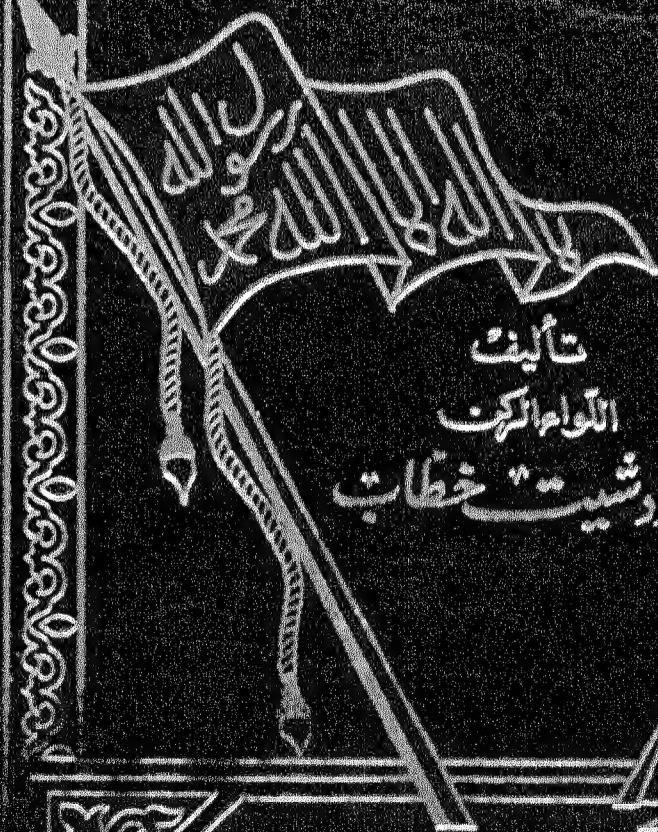 لا اله الا الله محمد
رسول الله
تأليف
اللواء الركن
شيت خطاب